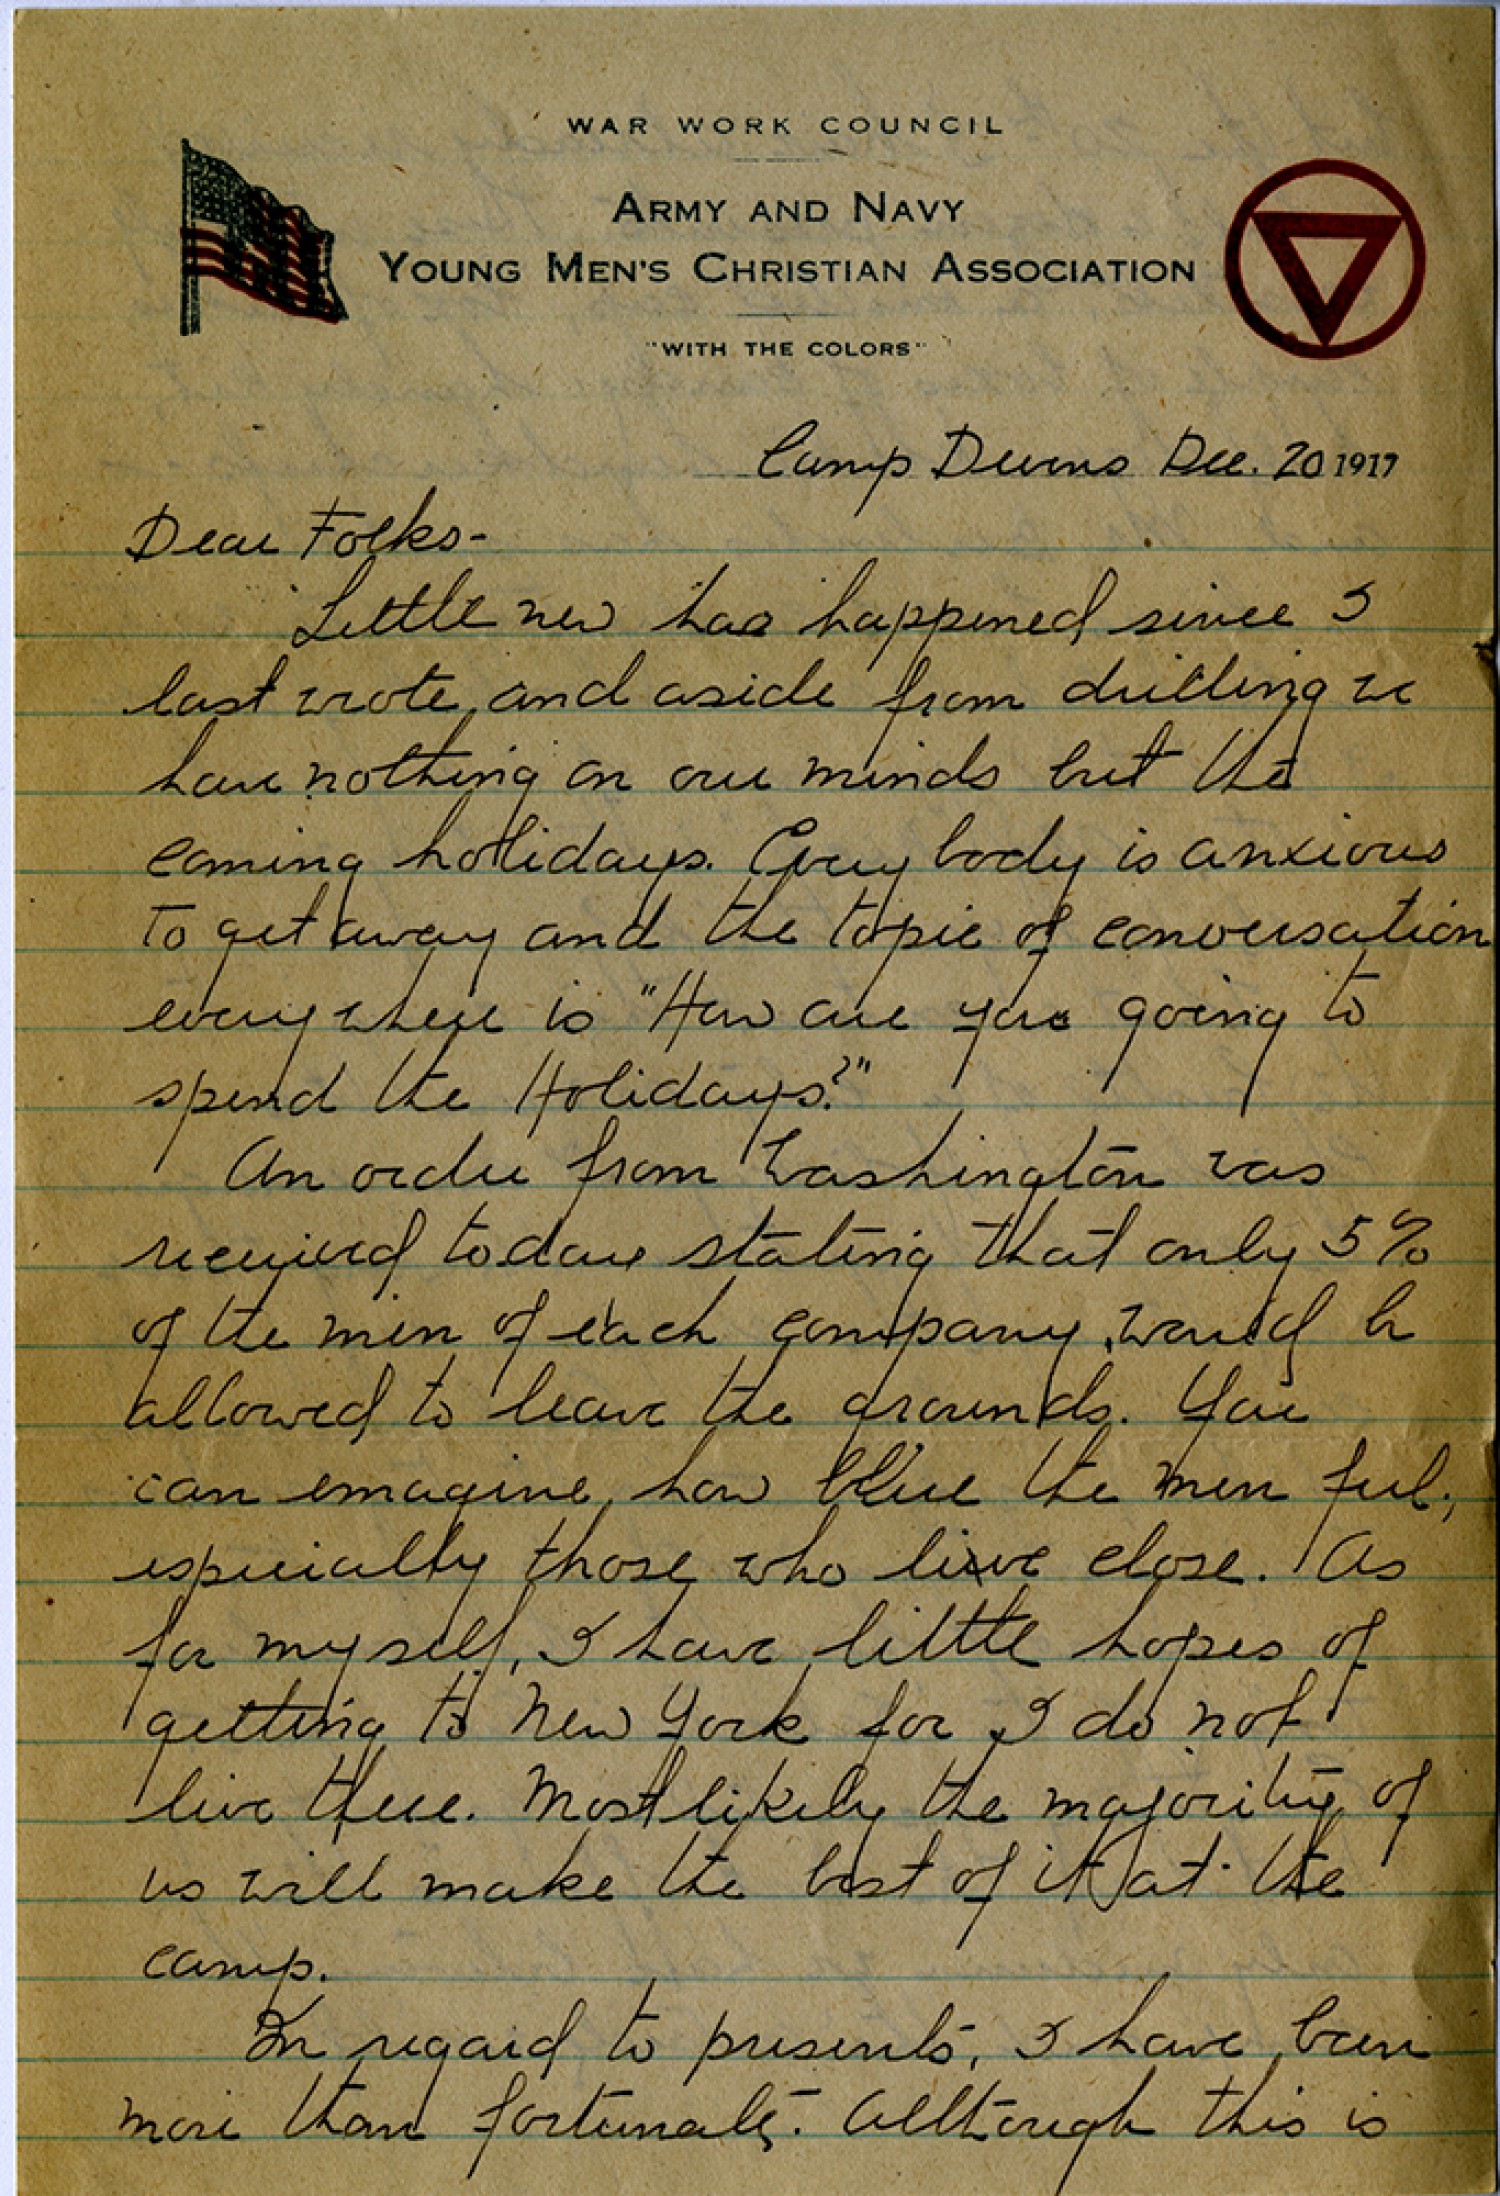 WAR WORK COUNCIL
ARMY AND NAVY
YOUNG MEN'S CHRISTIAN ASSOCIATION
"WITH THE COLORS"
Camp Devens Dec. 20 1917
Dear Folks-
Little new has happened since I
last wrote, and aside from drilling we
have nothing on our minds but the
coming holidays. Every body is anxious
to get away and the topic of conversation
everywhere is "How are you going to
spend the Holidays?"
An order from Washington was
received today stating that only 5%
of the men of each company, would be
allowed to leave the grounds. You
can emagine, how blue the men feel,
especially those who live close. As
for myself, I have little hopes of
getting to New York for I do not
live there. Most likely the majority of
us will make the best of it at the
camp.
In regard to presents, I have been
more than fortunate. Although this is